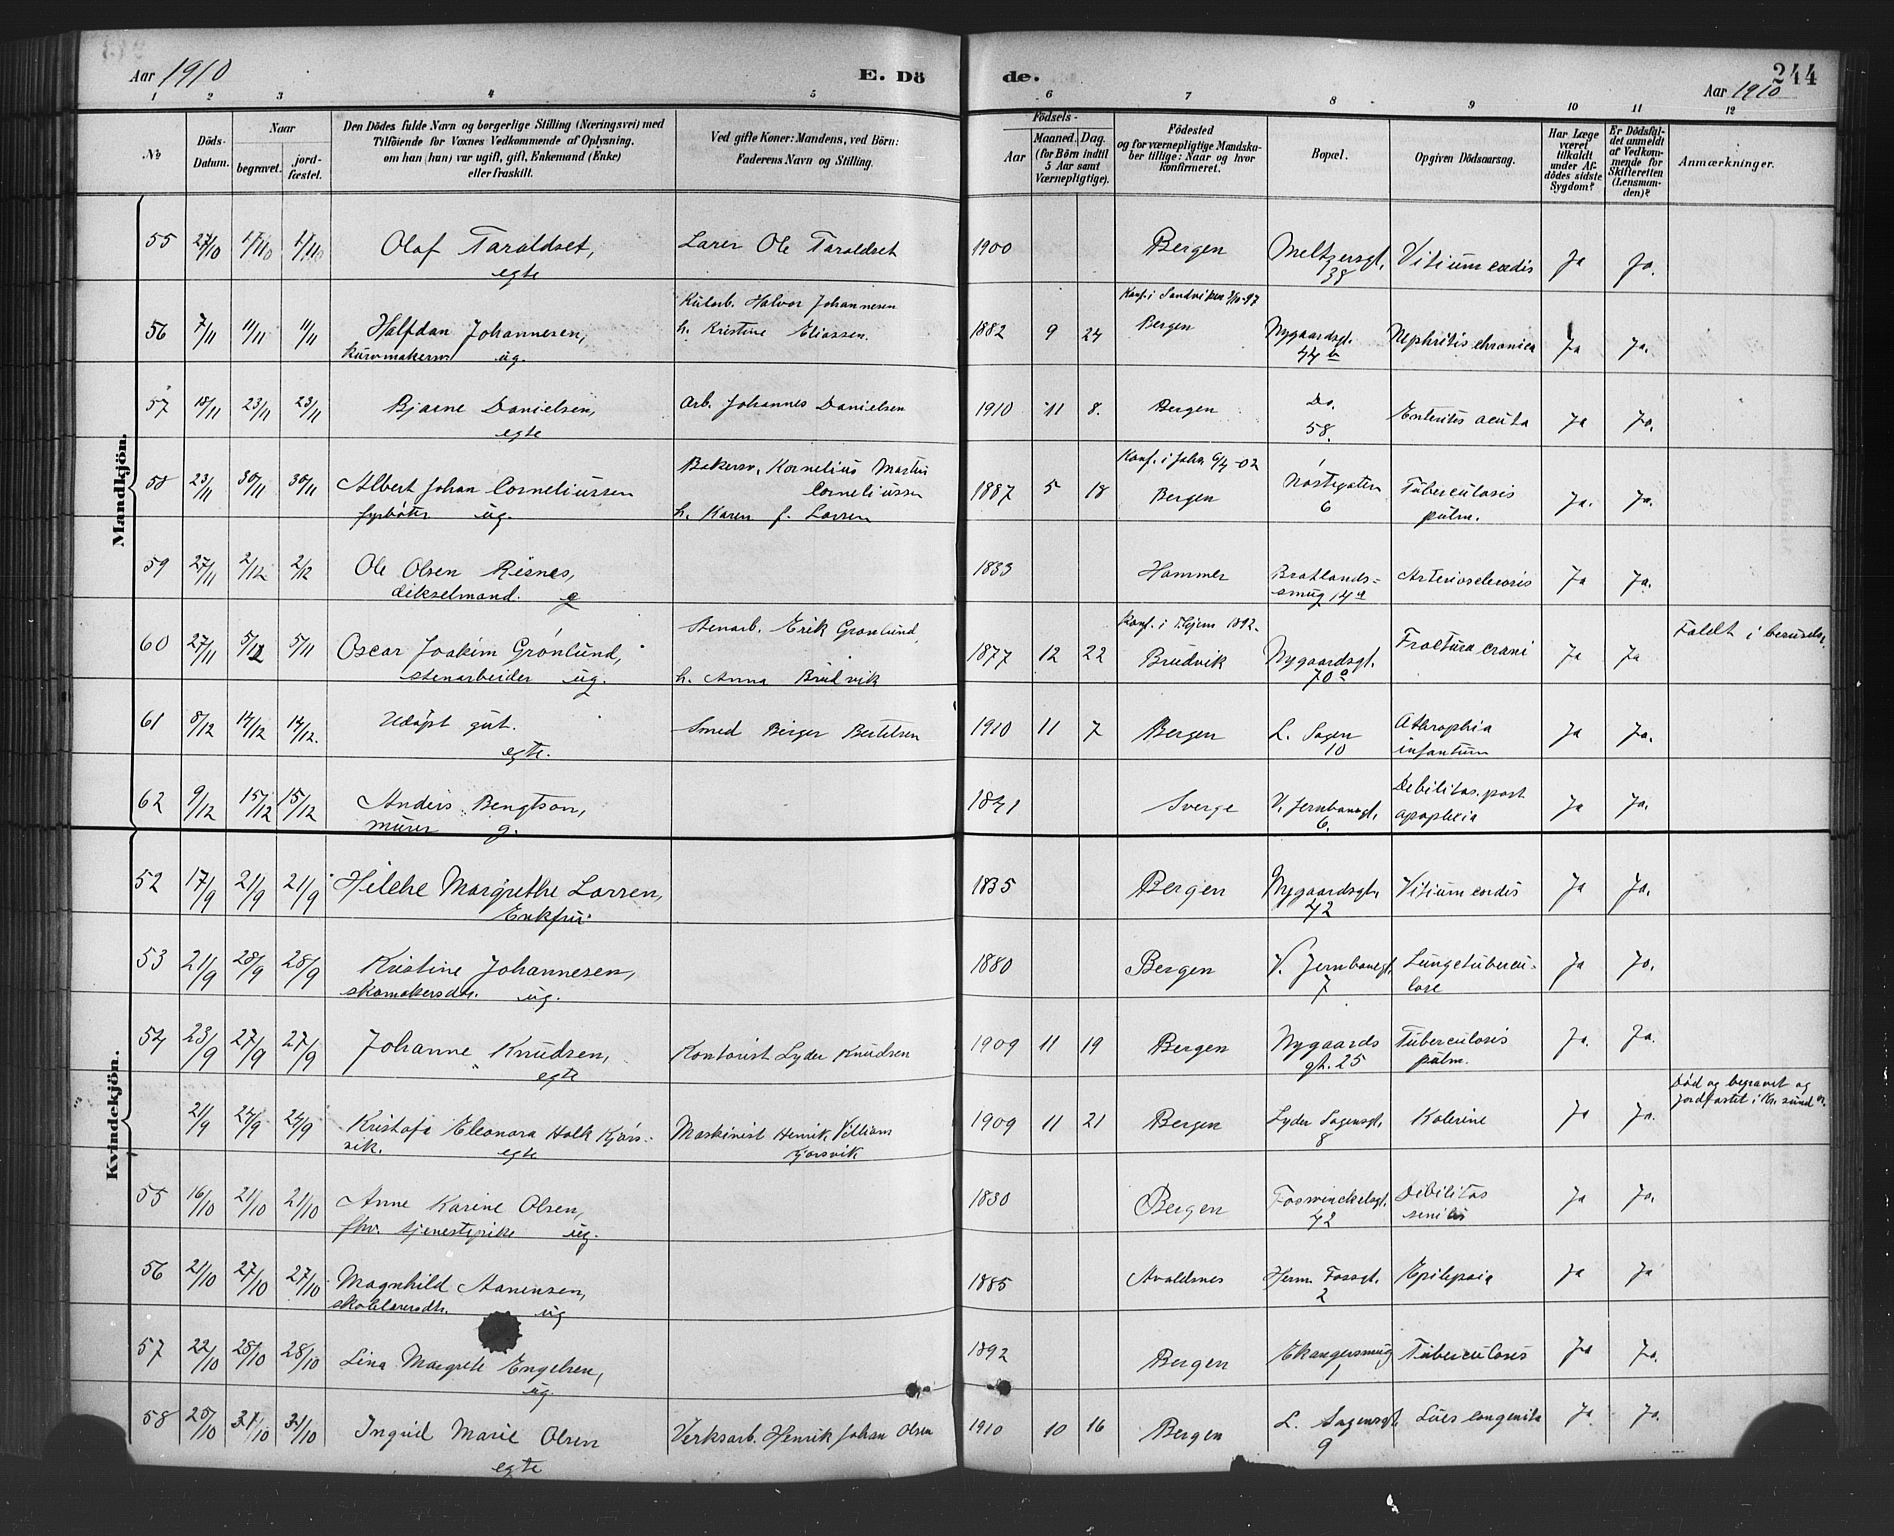 Aar 1910
E. Dö
de.
244
Aar 1910
1 2 3 4 5 6 7 8 9 10 11 12
No
Döds-
Datum.
Naar
begravet.
jord-
fæstet.
Den Dödes fulde Navn og borgerlige Stilling (Næringsvei) med
Tilföiende for Voxnes Vedkommende af Oplysning,
om han (hun) var ugift, gift, Enkemand (Enke)
eller fraskilt.
Ved gifte Koner: Mandens, ved Börn:
Faderens Navn og Stilling.
Födsels-
Aar
Maaned. Dag.
(for Börn indtil
5 Aar samt
Værnepligtige).
Födested
og for værnepligtige Mandska-
ber tillige: Naar og hvor
konfirmeret.
Bopæl.
Opgiven Dödsaarsag.
Har Læge
været
tilkaldt
under Af-
dödes sidste
Sygdom?
Er Dödsfal-
det anmeldt
af Vedkom-
mende for
Skifteretten
(Lensman-
den)?
Anmærkninger.
Mandkjön.
55 27/10 1/11 1/11 Olaf Taraldset, Lærer Ole Taraldset 1900 Bergen Meltzersgt. Vitium cordis Ja Ja.
egte 38
Kularb. Halvor Johannesen Konf. i Sandviken 3/10-97
56 7/11 11/11 11/11 Halfdan Johannesen, h. Kristine Eliassen. 1882 9 24 Bergen Nygaardsgt. Nephritis chronica Ja Ja.
kurvmakersv. ug. 44 b
57 18/11 23/11 23/11 Bjarne Danielsen, Arb. Johannes Danielsen 1910 11 8. Bergen Do. Enteritis acuta Ja Ja.
egte 58.
Bakersv. Kornelius Martin Konf. i Joha 6/4-02
58 23/11 30/11 30/11 Albert Johan Corneliussen Corneliussen 1887 5 18 Bergen Nøstegaten Tuberculosis Ja. Ja.
fyrbøter ug. h. Karen f. Larsen 6 pulm.
59 27/11 2/12 2/12 Ole Olsen Risnes, 1833 Hammer Bratlands- Arteriosclerosis Ja Ja.
dikselmand. g smug 14 a
Stenarb. Erik Grønlund, Faldt i beruselse.
60 27/11 5/12 5/11 Oscar Joakim Grønlund, 1877 12 22 Brudvik Nygaardsgt. Fractura crani Ja Ja
stenarbeider ug. h. Anna Brudvik 70 a
61 8/12 14/12 14/12. Udøpt gut. Smed Birger Bertelsen 1910 11 7 Bergen L. Sagen Athrophia Ja Ja.
egte. 10 infantum
62 9/12 15/12 15/12 Anders Bengtson, 1841 Sverge V. Jernbanegt. Debilitas post Ja Ja.
murer g. 6. apoplexia
Kvindekjön.
52 17/9 21/9 21/9 Helche Margrethe Larsen, 1835 Bergen Nygaardsgt. Vitium cordis Ja Ja.
Enkfru 42
53 21/9 28/9 28/9 Kristine Johannesen, 1880 Bergen V. Jernbanegt. Lungetubercu- Ja Ja.
skomakersdtr. ug. 7 lose
54 23/9 27/9 27/9 Johanne Knudsen, Kontorist Lyder Knudsen 1909 11 19 Bergen Nygaards Tuberculosis Ja. Ja.
egte gt. 25 pulm.
Død og begravet og
jordfæstet i Kr. sund
21/9 24/9 24/9 Kristofa Eleonora Holk Kjørs- Maskinist Henrik William 1909 11 21 Bergen Lyder Sagensgt. Kolerine Ja Ja.
vik. egte Kjørsvik 8
55 16/10 21/10 21/10 Anne Karine Olsen, 1830 Bergen Foswinckelsgt. Debilitas Ja Ja.
fhv. tjenestepike ug. 42 senilis
56 21/10 27/10 27/10 Magnhild Aanensen, 1885 Avaldsnes Herm. Fossgt. Epilepsia Ja Ja
skolelærersdtr. ug 2
57 22/10 28/10 28/10 Lina Margrete Engelsen, 1892 Bergen Ekangersmug Tuberculosis Ja Ja.
ug 1
58 25/10 31/10 31/10 Ingrid Marie Olsen Verksarb. Henrik Johan Olsen 1910 10 16 Bergen L. Sagensgt. Lues congenita Ja Ja.
egte 9